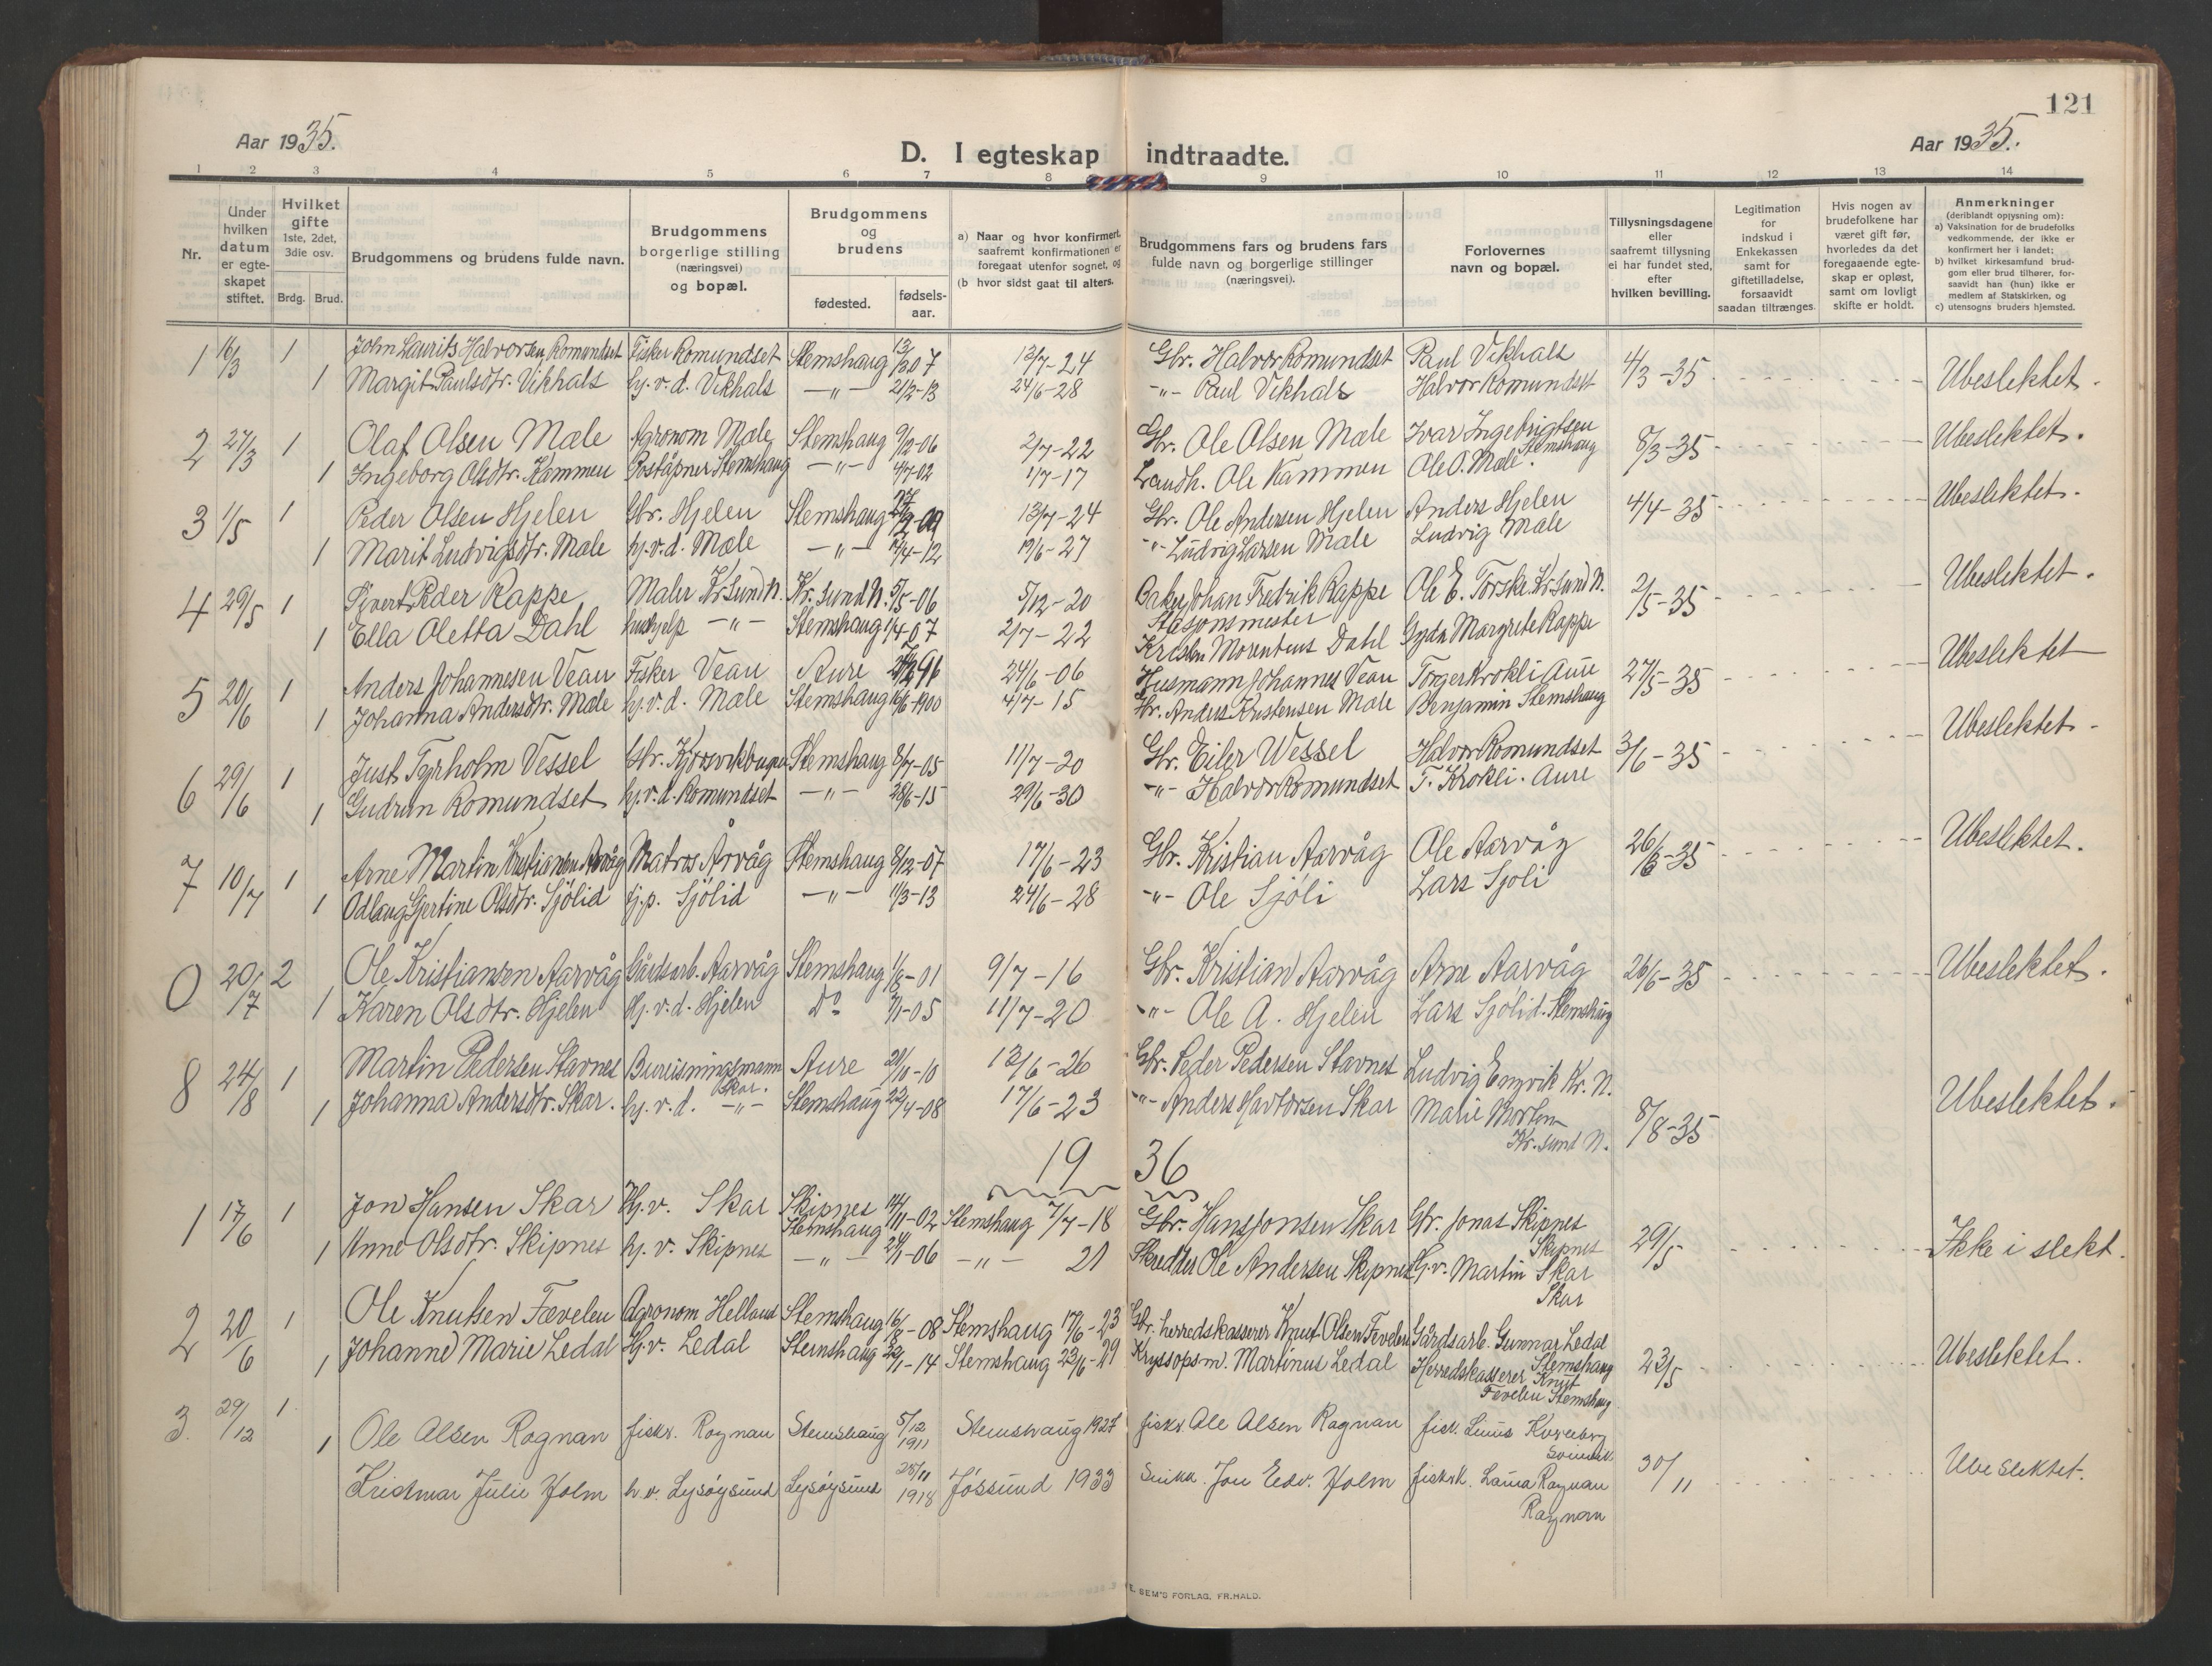 121
Aar 1935.
Aar 1935.
D. I egteskap indtraadte.
1 2 3 4 5 6 7 8 9 10 11 12 13 14
Nr.
Under hvilken datum er egteskapet stiftet.
Hvilket gifte 1ste, 2det, 3die osv.
Brdg. Brud.
Brudgommens og brudens fulde navn.
Brudgommens borgerlige stilling (næringsvei) og bopæl.
Brudgommens og brudens
fødested.
fødselsaar.
a) Naar og hvor konfirmert, saafremt konfirmationen er foregaat utenfor sognet, og
(b hvor sidst gaat til alters.
Brudgommens fars og brudens fars fulde navn og borgerlige stillinger (næringsvei).
Forlovernes navn og bopæl.
Tillysningsdagene eller saafremt tillysning ei har fundet sted, efter hvilken bevilling.
Legitimation for indskud i Enkekassen samt for giftetilladelse, forsaavidt saadan tiltrænges.
Hvis nogen av brudefolkene har været gift før, hvorledes da det foregaaende egteskap er opløst, samt om lovligt skifte er holdt.
Anmerkninger (deriblandt oplysning om):
a) Vaksination for de brudefolks vedkommende, der ikke er konfirmert her i landet;
b) hvilket kirkesamfund brudgom eller brud tilhører, forsaavidt han (hun) ikke er medlem af Statskirken, og
c) utensogns bruders hjemsted.
1 16/3 1 John Laurits Halvorsen Romundset Fisker Romundset Stemshaug 07 13/7-24 Gbr. Halvor Romundset Paul Vikhals 4/3-35 Ubeslektet.
1 Margit Paulsdtr. Vikhals hj.v.d. Vikhals -"- 21/2-13 24/6-28 -"- Paul Vikhals Halvor Romundset
2 27/3 1 Olaf Olsen Mæle Agronom Mæle Stemshaug 9/12-06 2/7-22 Gbr. Ole Olsen Mæle Ivar Ingebrigtsen Stemshaug 8/3-35 Ubeslektet.
1 Ingeborg Olsdtr. Kammen Poståpner Stemshaug -"- 4/7-02 1/7-17 Landh. Ole Kammen Ole O. Mæle.
3 1/5 1 Peder Olsen Hjelen Gbr. Hjelen Stemshaug 13/7-24 Gbr. Ole Andersen Hjelen Anders Hjelen 4/4-35 Ubeslektet.
1 Marit Ludvigsdtr. Mæle hj.v.d. Mæle -"- /4-12 19/6-27 -"- Ludvig Larsen Mæle Ludvig Mæle
4 29/5 1 Sivert Peder Rappe Maler Kr.sund N. Kr.sund N. 5/5-06 5/12-20 Baker Johan Fredrik Rappe Ole E. Torske. Kr.sund N. 2/5-35 Ubeslektet.
1 Ella Oletta Dahl hushjelp -"- Stemshaug 1/4-07 2/7-22 Stasjonsmester Kristen Morentius Dahl Gyda Margrete Rappe
5 20/6 1 Anders Johannesen Vean Fisker Vean Aure 96 24/6-06 Husmann Johannes Vean Torger Krokli Aure 27/5-35 Ubeslektet
1 Johanna Andersdtr. Mæle hj.v.d. Mæle Stemshaug 16/6-1900 4/7-15 Gbr. Anders Kristensen Mæle Benjamin Stemshaug
6 29/6 1 Just Tyrholm Vessel Gbr. Stemshaug 8/7-05 11/7-20 Gbr. Eiler Wessel Halvor Romundset 3/6-35 Ubeslektet.
1 Gudrun Romundset hj.v.d. Romundset -"- 28/6-15 29/6-30 -"- Halvor Romundset T. Krokli. Aure
7 10/7 1 Arne Martin Kristiansen Arvåg Matros Årvåg Stemshaug 8/12-07 17/6-23 Gbr. Kristian Aarvåg Ole Aarvåg 26/6-35 Ubeslektet.
1 Odlaug Gjertine Olsdtr. Sjölid hj.p. Sjölid -"- 11/3-13 24/6-28 -"- Ole Sjöli Lars Sjoli
0 20/7 2 Ole Kristiansen Aarvåg Gårdsarb. Aarvåg Stemshaug 1/8-01 9/7-16 Gbr. Kristian Aarvåg Arne Aarvåg 26/6-35 Ubeslektet.
1 Karen Olsdtr. Hjelen Hj.v.d. Hjelen Do /1-05 11/7-20 -"- Ole A. Hjelen Lars Sjölid. Stemshaug
8 24/8 1 Martin Pedersen Stavnes Bureisningsmann Skar. Aure 20/11-10 13/6-26 Gbr. Peder Pedersen Stavnes Ludvig Engvik Kr. N.
1 Johanna Andersdtr. Skar. hj.v.d. -"- Stemshaug 22/4-08 17/6-23 -"- Anders Skar Marie Kr.sund N. 8/8-35 Ubeslektet.
19 36
1 17/6 1 Jon Hansen Skar Hj.v. Skar Skipnes Stemshaug 14/11-02 Stemshaug 7/7-18 Gbr. Hans Jonsen Skar Gbr. Jonas Skipnes Skipnes 29/5 Ikke i slekt.
1 Anne Olsdtr. Skipnes hj.v. Skipnes -"- 24/1-06 -"- 21 Skredder Ole Andersen Skipnes Hj.v. Martin Skar Skar
2 20/6 1 Ole Knutsen Fævelen Agronom Helland Stemshaug 16/8-08 Stemshaug 17/6-23 Gbr. herredskasserer Knut Olsen Fevelen Gårdsarb. Gunnar Ledal Stemshaug 23/5 Ubeslektet.
1 Johanne Marie Ledal Hj.v. Ledal Stemshaug 29/1-14 Stemshaug 23/6-29 Kryssopsm. Martinus Ledal Herredskasserer Knut Fevelen Stemshaug.
3. 29/12 1 Ole Olsen Rognan fiskr. Rognan Stemshaug 5/12 1911 Stemshaug 1927 fiskr. Ole Olsen Rognan fisk. Linus 30/11 Ubeslektet.
1 Kristmar Julie Holm h.v. Lysøysund Lysøysund 25/11 1918 Jössund 1933 Snikk. Jon Edv. Holm Rognan Rognan
E. SEM'S FORLAG, FR.HALD.